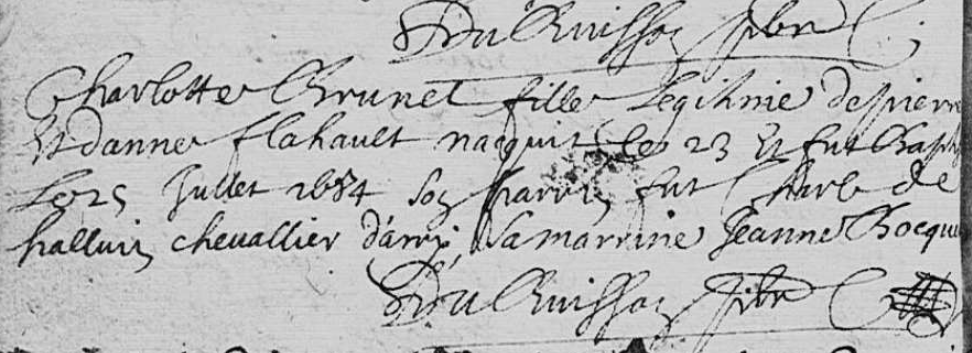 Du Buisson pbr
Charlotte Brunet fille Legitime de pierre
Et danne flahault nacquit le 23 Et fut bapt
Le 25 Jullet 1684 son parrin fut Charle de
halluin chevallier La marrine Jeanne Bocqu
Du Buisson pbr